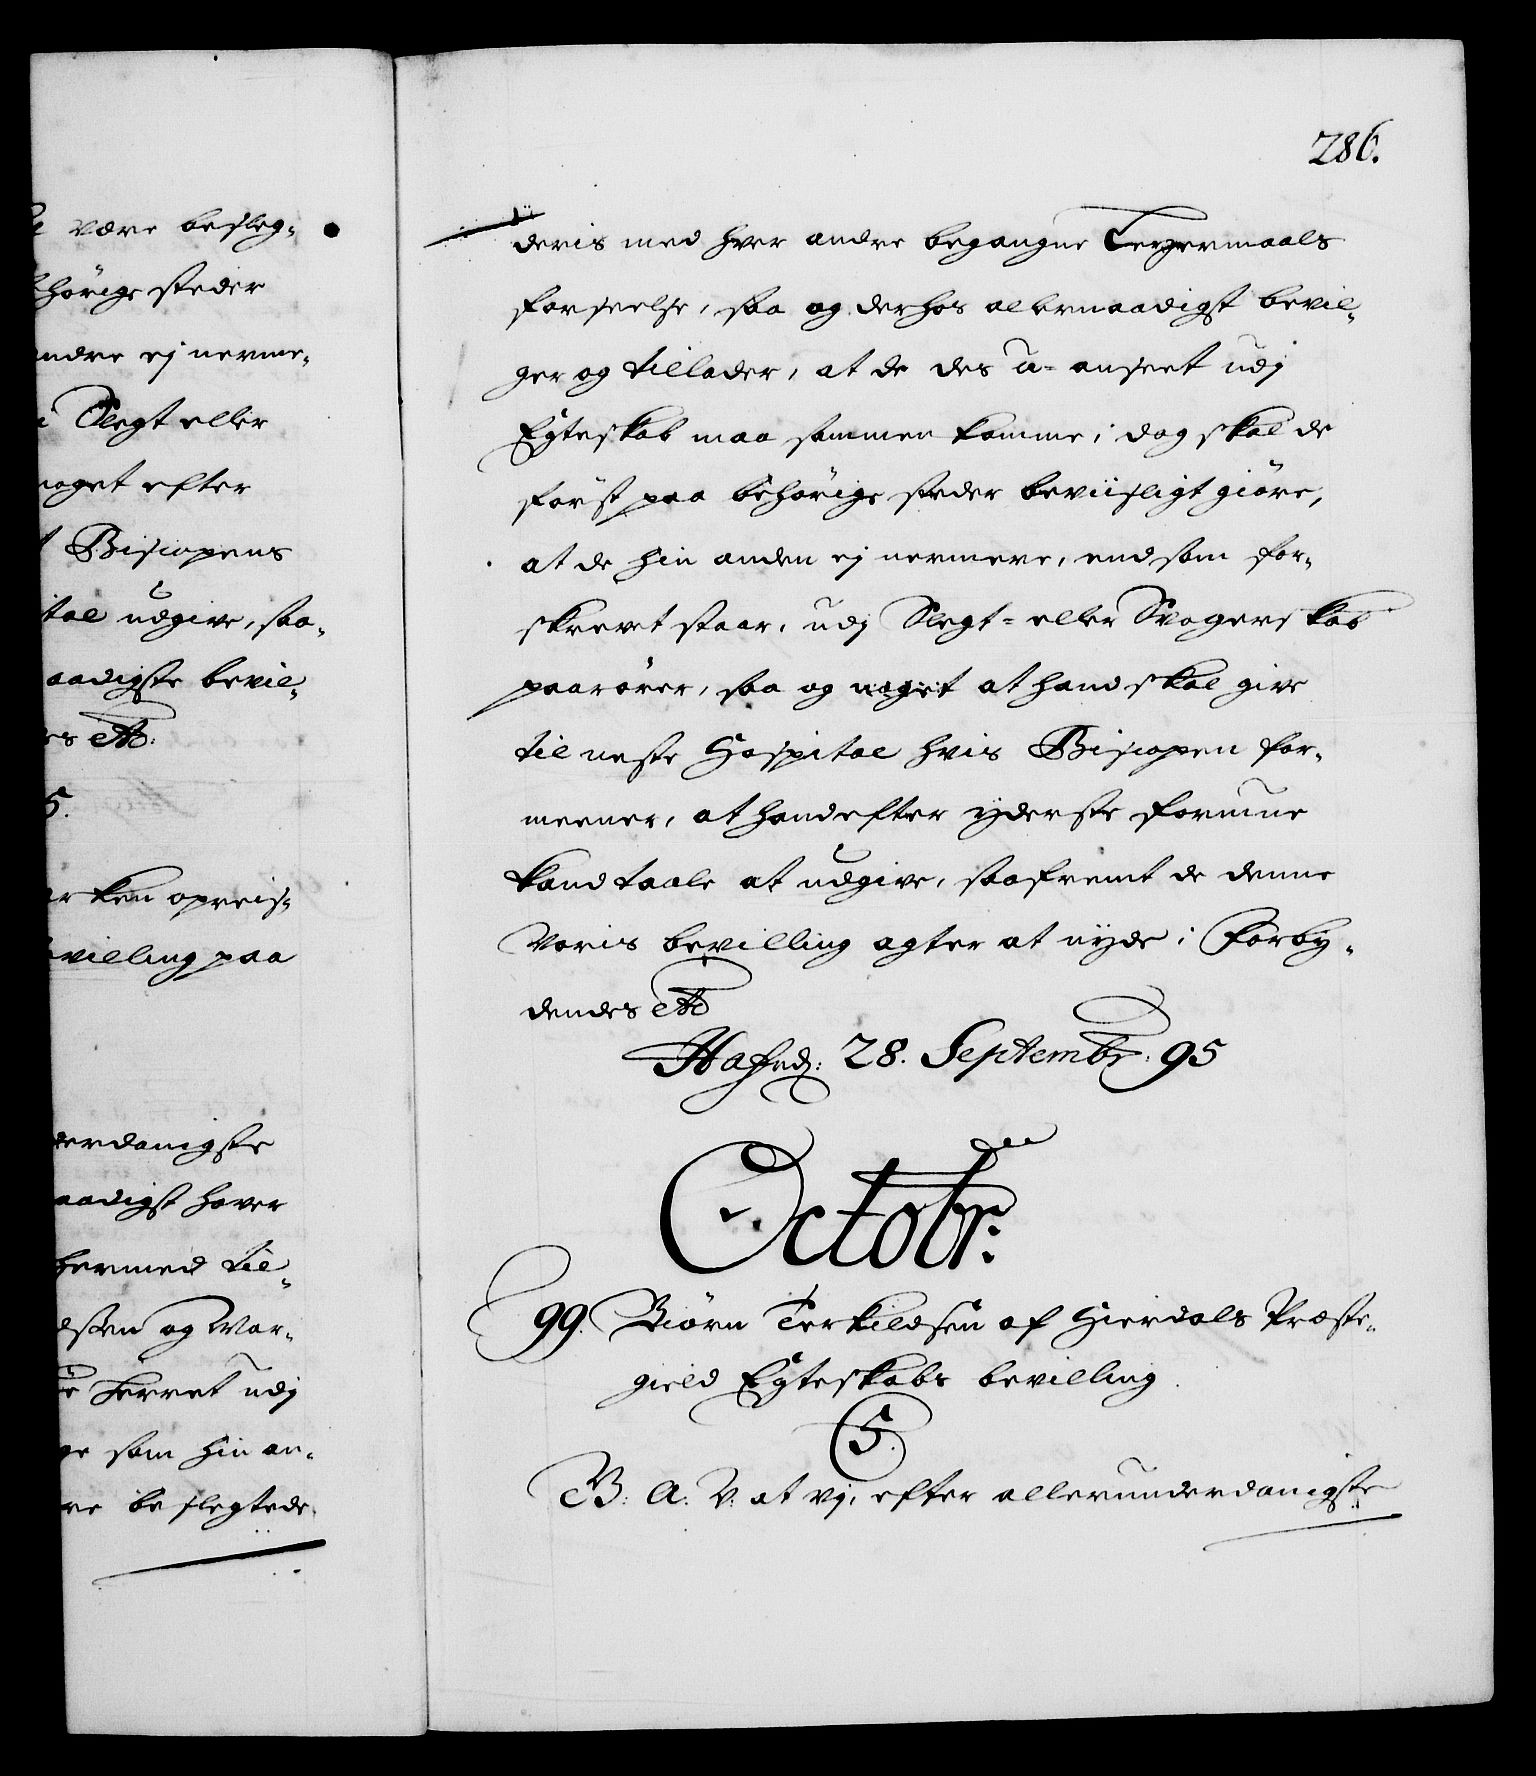 e være besleg-
hörige steder
andre ej nerme-
i Slegt eller
noget efter
t Biscopens
tal udgive, saa-
aadigste bevil-
es etc:
5.
er Ken opreis-
evilling paa
derdanigste
aadigst haver
hermed til-
dsen og Mar-
Herret udj
ge som hin an-
re beslegtede,
286.
deris med hver andre begangne Leyermaals
forseelse, saa og derhos allernaadigst bevil-
ger og tillader, at de des u-anseet udj
Egteskab maa sammen komme; dog skal de
först paa behörige steder beviisligt giöre,
at de hin anden ej nermere, end som for-
skrevet staar, udj Slegt- eller Svogerskab
paarörer, saa og noget at hand skal give
til neste Hospital hvis Biscopen for-
meener, at hand efter yderste formue
kand taale at udgive, saafremt de denne
Voris bevilling agter at nyde; Forby-
dendes etc
Hafned: 28. Septembr: 95
Octobr:
99. Biörn Terkildsen af Hierdals Præste-
gield Egteskabs bevilling.
5.
B: A: V: at vj, efter allerunderdanigste